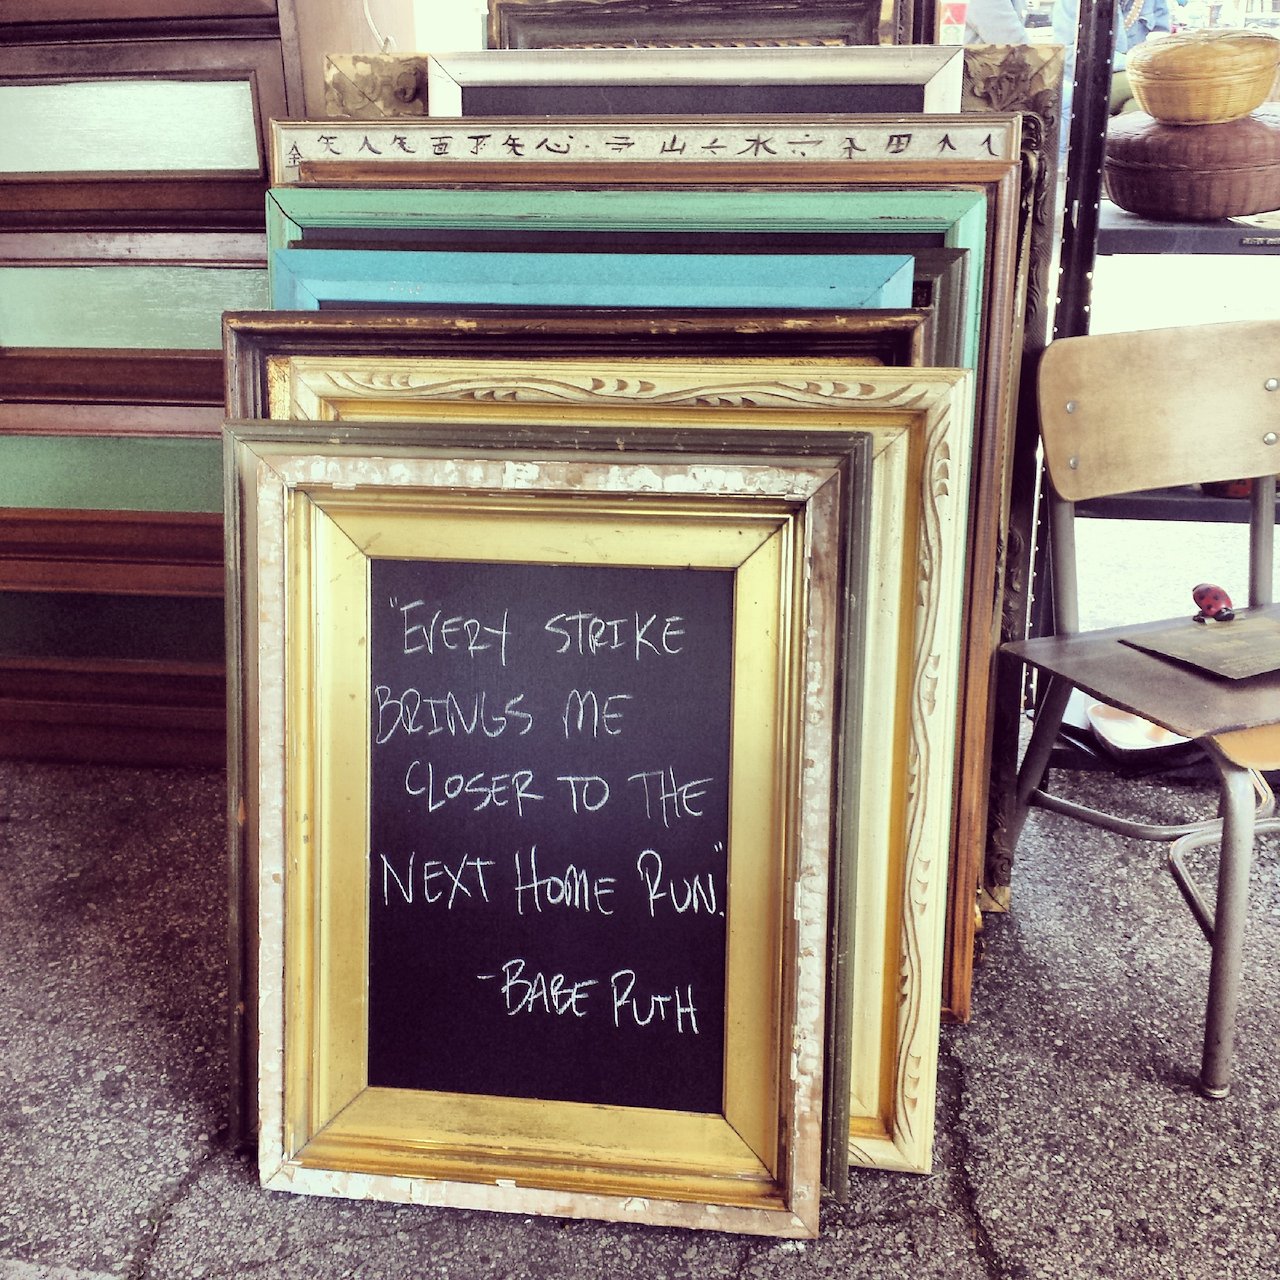 "EVERY STRIKE
BRINGS ME
CLOSER TO THE
NEXT HOME RUN."
-BABE RUTH